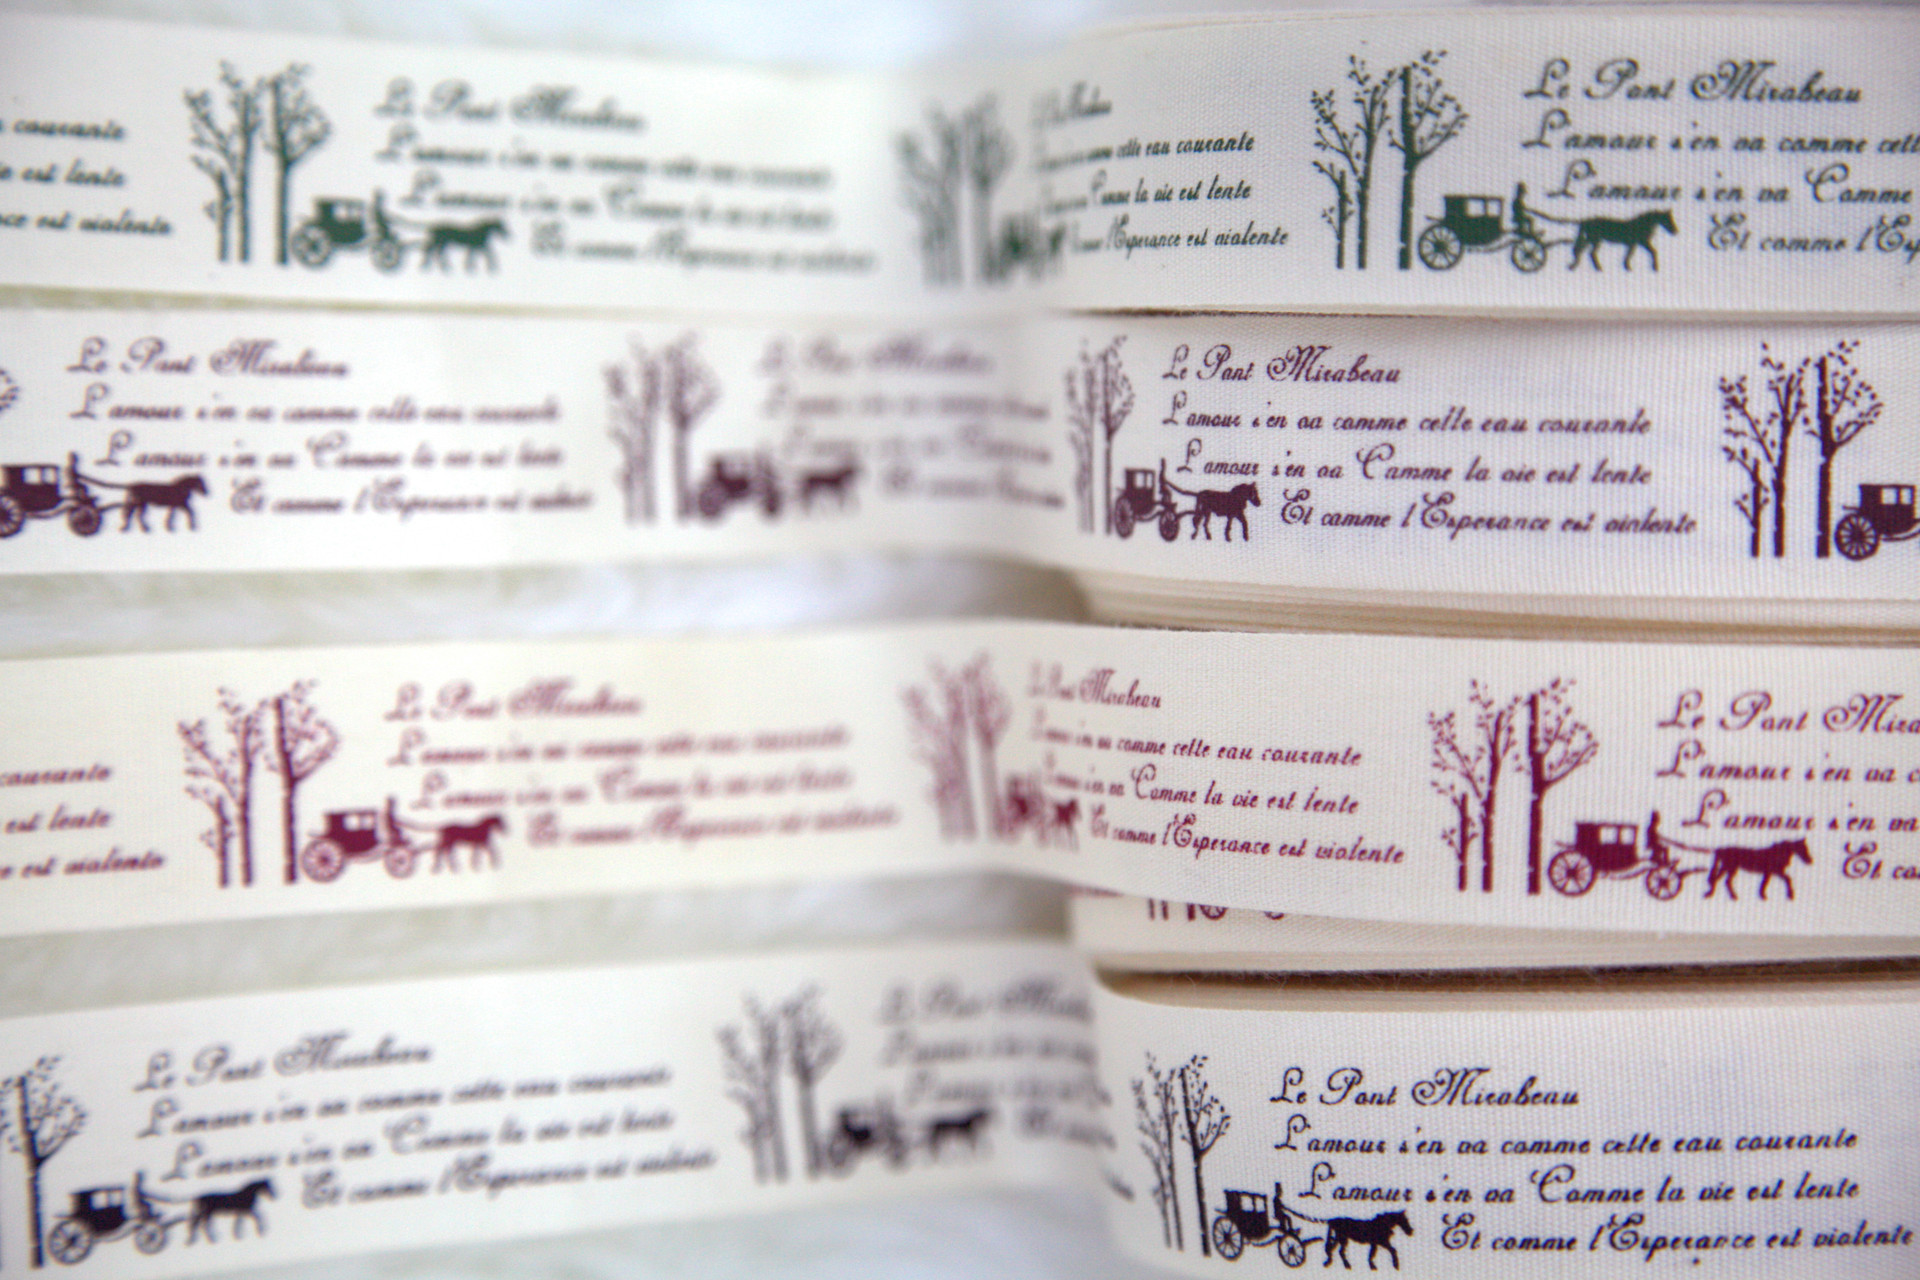 courante
est lente
ce est violente
Le Pont Mirabeau
L'amour s'en va comme cette eau courante
L'amour s'en va Comme la vie est lente
Et comme l'Esperance est violente
cette eau courante
Comme la vie est lente
l'Esperance est violente
Le Pont Mirabeau
L'amour s'en va comme cett
L'amour s'en va Comme
Et comme l'Esp
Le Pont Mirabeau
L'amour s'en va comme cette eau courante
L'amour s'en va Comme la vie est lente
Et comme l'Esperance est violente
Le Pont Mirabeau
L'amour s'en va comme cette eau courante
L'amour s'en va Comme la vie est lente
Et comme l'Esperance est violente
courante
est lente
ce est violente
Le Pont Mirabeau
L'amour s'en va comme cette eau courante
L'amour s'en va Comme la vie est lente
Et comme l'Esperance est violente
Mirabeau
comme cette eau courante
s'en va Comme la vie est lente
Et comme l'Esperance est violente
Le Pont Mira
L'amour s'en va c
L'amour s'en va
Et co
Le Pont Mirabeau
L'amour s'en va comme cette eau courante
L'amour s'en va Comme la vie est lente
Et comme l'Esperance est violente
Le Pont Mirabeau
L'amour s'en va comme cette eau courante
L'amour s'en va Comme la vie est lente
Et comme l'Esperance est violente